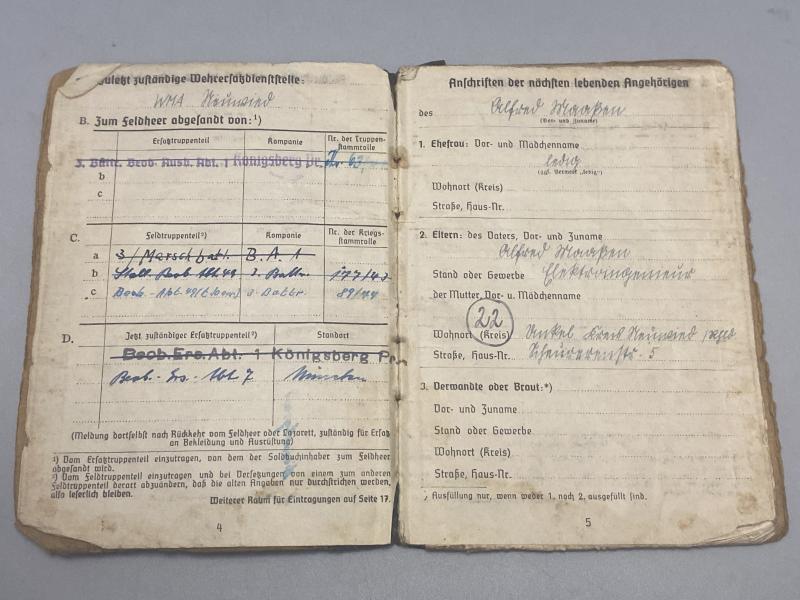 Zuletzt zuständige Wehrersatzdienststelle:
WMA Neuwied
B. Zum Feldheer abgesandt von:¹)
Ersatztruppenteil Kompanie Nr. der Truppen-stammrolle
a 3. Battr. Beob. Ausb. Abt. 1 Königsberg Pr. Nr. 63
b
c
C. Feldtruppenteil²) Kompanie Nr. der Kriegs-stammrolle
a 3/Marschbatl. B. A. 1
b Beob. Abt. 49 3. Battr. 177/43
c Beob.-Abt. 49 3. Battr. 89/44
D. Jetzt zuständiger Ersatztruppenteil²) Standort
Beob. Ers. Abt. 1 Königsberg Pr.
Beob.-Ers.-Abt. 7 München
(Meldung dortselbst nach Rückkehr vom Feldheer oder Lazarett, zuständig für Ersatz
an Bekleidung und Ausrüstung)
¹) Vom Ersatztruppenteil einzutragen, von dem der Soldbuchinhaber zum Feldheer
abgesandt wird.
²) Vom Feldtruppenteil einzutragen und bei Versetzungen von einem zum anderen
Feldtruppenteil derart abzuändern, daß die alten Angaben nur durchstrichen werden,
also leserlich bleiben.
Weiterer Raum für Eintragungen auf Seite 17.
4
Anschriften der nächsten lebenden Angehörigen
des Alfred Maaßen
(Vor- und Zuname)
1. Ehefrau: Vor- und Mädchenname
ledig
(ggf. Vermerk „ledig")
Wohnort (Kreis)
Straße, Haus-Nr.
2. Eltern: des Vaters, Vor- und Zuname
Alfred Maaßen
Stand oder Gewerbe Elektroingenieur
der Mutter, Vor- u. Mädchenname
22
Wohnort (Kreis) Unkel Kreis Neuwied
Straße, Haus-Nr. Scheurenerstr. 5
3. Verwandte oder Braut:*)
Vor- und Zuname
Stand oder Gewerbe
Wohnort (Kreis)
Straße, Haus-Nr.
*) Ausfüllung nur, wenn weder 1. noch 2. ausgefüllt sind.
5